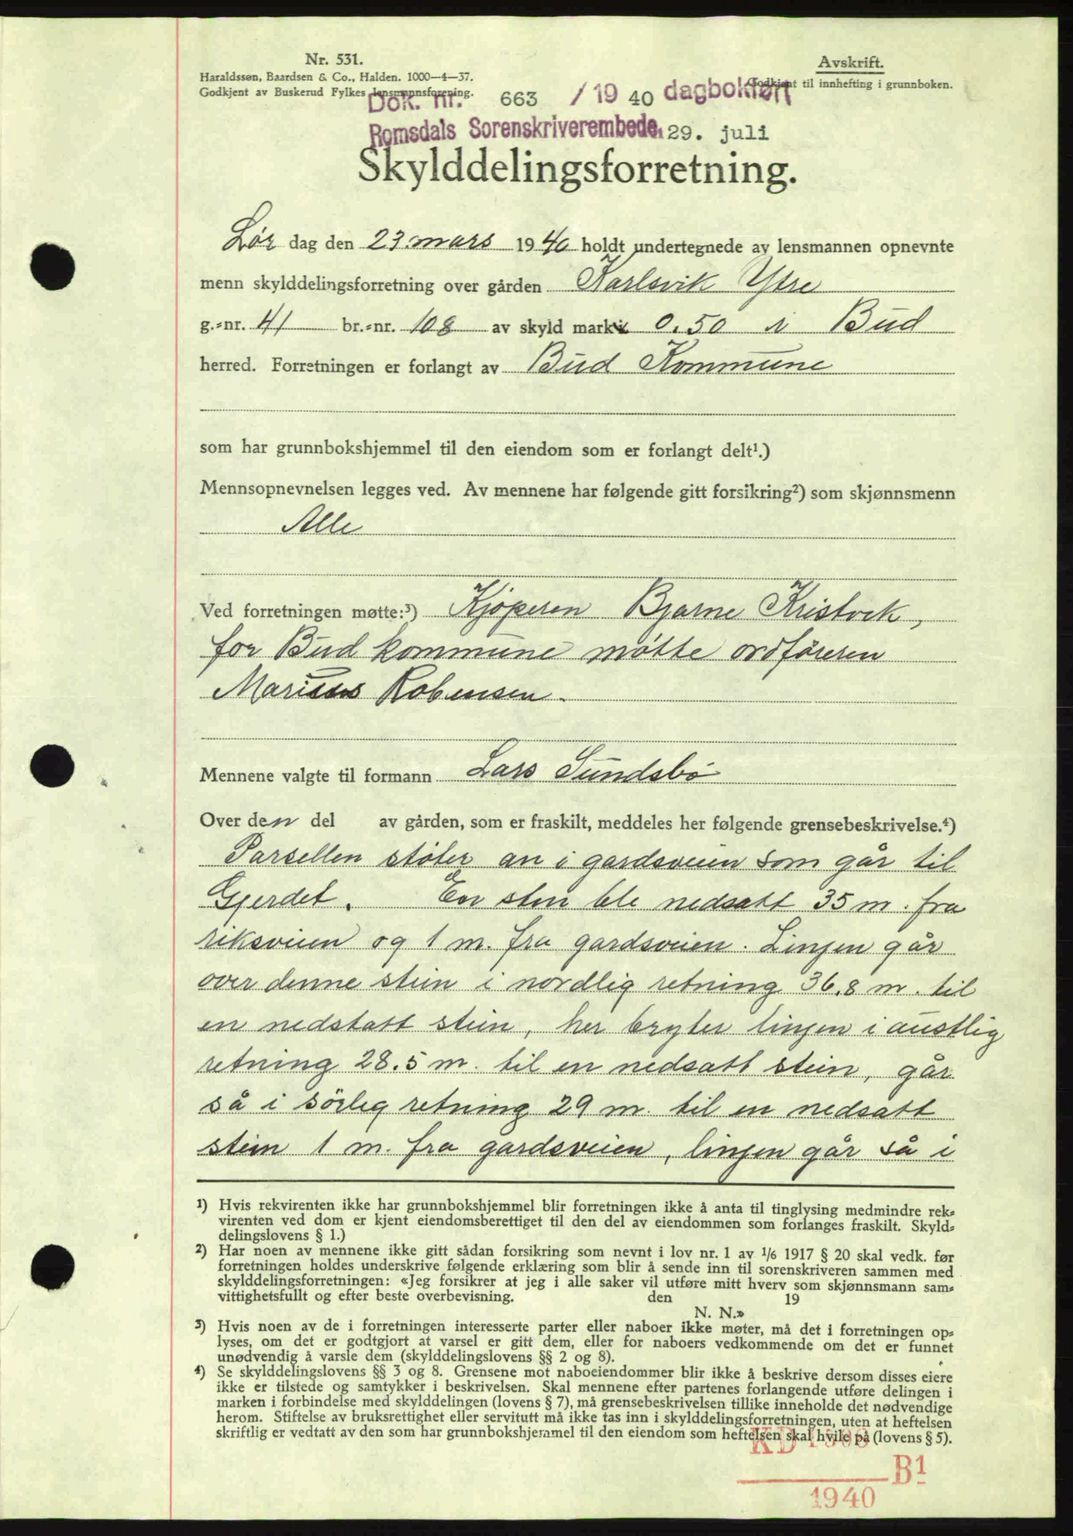 Nr. 531.
Haraldssøn, Baardsen & Co., Halden. 1000—4—37.
Godkjent av Buskerud Fylkes lensmannsforening.
Avskrift.
Godkjent til innhefting i grunnboken.
Dok. nr. 663 /19 40 dagbokført
Romsdals Sorenskriverembede, 29. juli
Skylddelingsforretning.
Lør dag den 23. mars 1940 holdt undertegnede av lensmannen opnevnte
menn skylddelingsforretning over gården Karlsvik Ytre
g.-nr. 41 br.-nr. 108 av skyld mark 0.50 i Bud
herred. Forretningen er forlangt av Bud Kommune
som har grunnbokshjemmel til den eiendom som er forlangt delt¹.)
Mennsopnevnelsen legges ved. Av mennene har følgende gitt forsikring²) som skjønnsmenn
Alle
Ved forretningen møtte:³) Kjøperen Bjarne Kristvik,
for Bud kommune møtte ordføreren
Marius Robensen.
Mennene valgte til formann Lars Sundsbø
Over den del av gården, som er fraskilt, meddeles her følgende grensebeskrivelse.⁴)
Parsellen støter an i gardsveien som går til
Gjerdet. En sten ble nedsatt 35 m. fra
riksveien og 1 m. fra gardsveien. Linjen går
over denne stein i nordlig retning 36,8 m. til
en nedstatt stein, her bryter linjen i austlig
retning 28.5 m. til en nedsatt stein, går
så i sørleg retning 29 m. til en nedsatt
stein 1 m. fra gardsveien, linjen går så i
¹) Hvis rekvirenten ikke har grunnbokshjemmel blir forretningen ikke å anta til tinglysing medmindre rek-
virenten ved dom er kjent eiendomsberettiget til den del av eiendommen som forlanges fraskilt. Skyld-
delingslovens § 1.)
²) Har noen av mennene ikke gitt sådan forsikring som nevnt i lov nr. 1 av 1/6 1917 § 20 skal vedk. før
forretningen holdes underskrive følgende erklæring som blir å sende inn til sorenskriveren sammen med
skylddelingsforretningen: «Jeg forsikrer at jeg i alle saker vil utføre mitt hverv som skjønnsmann sam-
vittighetsfullt og efter beste overbevisning. den 19
N. N.»
³) Hvis noen av de i forretningen interesserte parter eller naboer ikke møter, må det i forretningen op-
lyses, om det er godtgjort at varsel er gitt dem, eller for naboers vedkommende om det er funnet
unødvendig å varsle dem (skylddelingslovens §§ 2 og 8).
⁴) Se skylddelingslovens §§ 3 og 8. Grensene mot naboeiendommer blir ikke å beskrive dersom disses eiere
ikke er tilstede og samtykker i beskrivelsen. Skal mennene efter partenes forlangende utføre delingen i
marken i forbindelse med skylddelingen (lovens § 7), må grensebeskrivelsen tillike inneholde det nødvendige
herom. Stiftelse av bruksrettighet eller servitutt må ikke tas inn i skylddelingsforretningen, uten at heftelsen
skriftlig er vedtatt av den som har grunnbokshjemmel til den eiendom som heftelsen skal hvile på (lovens § 5).
KD
B1
1940